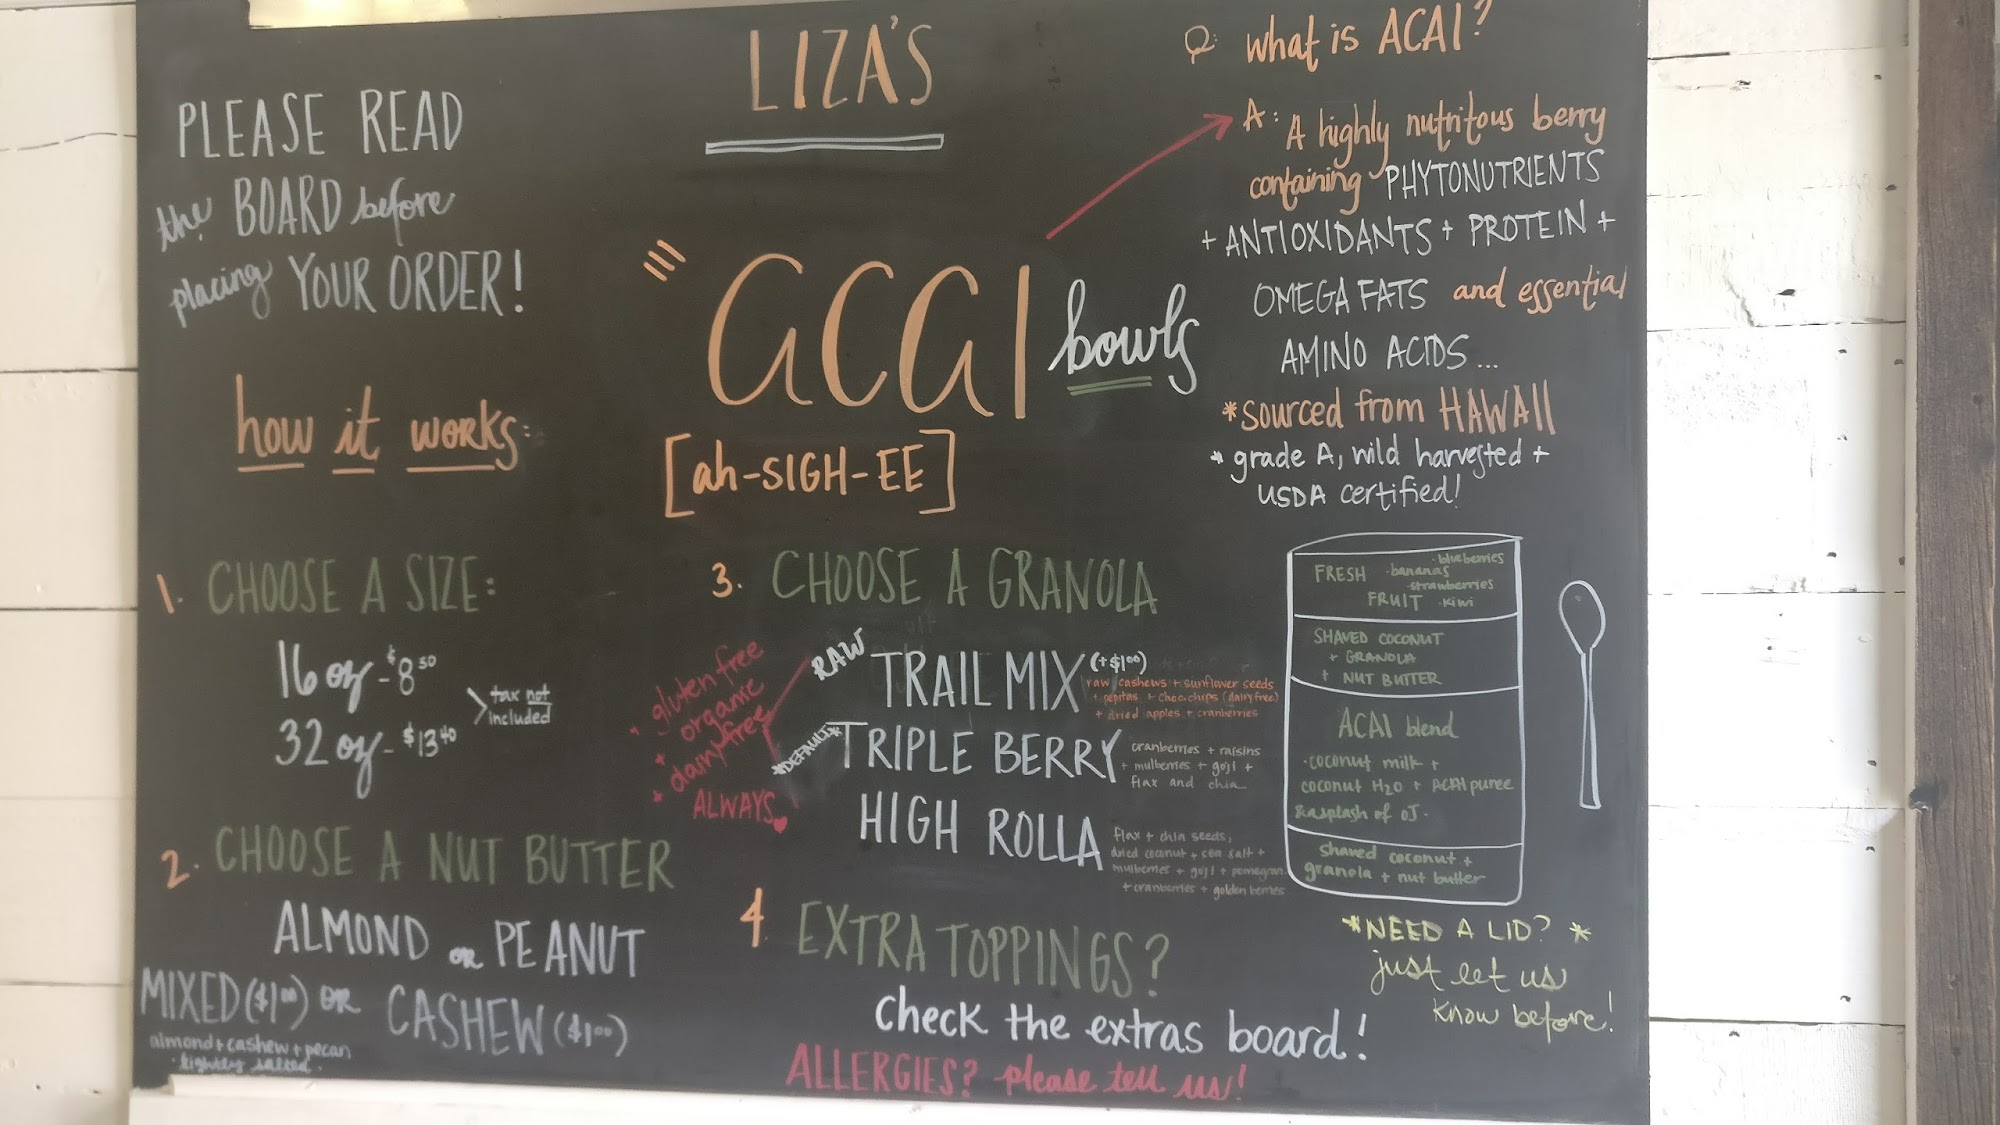 PLEASE READ
the BOARD before
placing YOUR ORDER!
how it works:
1. CHOOSE A SIZE:
16 oz - $8 50
32 oz - $13 40
tax not
included
2. CHOOSE A NUT BUTTER
ALMOND OR PEANUT
MIXED ($1 00) OR CASHEW ($1 00)
almond + cashew + pecan
· lightly salted ·
LIZA'S
ACAI bowls
[ah-SIGH-EE]
3. CHOOSE A GRANOLA
* gluten free
* organic
* dairy free
ALWAYS
RAW
TRAIL MIX (+$1 00)
raw cashews + sunflower seeds
+ pepitas + choc. chips (dairy free)
+ dried apples + cranberries
*DEFAULT*
TRIPLE BERRY
cranberries + raisins
+ mulberries + goji +
flax and chia
HIGH ROLLA
flax + chia seeds,
dried coconut + sea salt +
mulberries + goji + pomegran
+ cranberries + golden berries
4. EXTRA TOPPINGS?
check the extras board!
ALLERGIES? please tell us!
Q: what is ACAI?
A: A highly nutritous berry
containing PHYTONUTRIENTS
+ ANTIOXIDANTS + PROTEIN +
OMEGA FATS and essential
AMINO ACIDS...
*sourced from HAWAII
* grade A, wild harvested +
USDA certified!
FRESH
FRUIT
· blueberries
· bananas
· strawberries
· kiwi
SHAVED COCONUT
+ GRANOLA
+ NUT BUTTER
ACAI blend
· coconut milk +
coconut H2O + ACAI puree
& a splash of OJ.
shaved coconut +
granola + nut butter
*NEED A LID? *
just let us
know before!